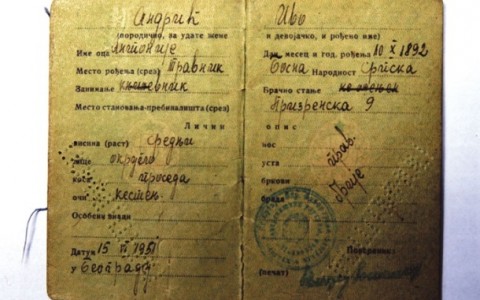 Андрић Иво
(породично, за удате жене и девојачко, и рођено име)
Име оца Антоније
Место рођења (срез) Травник
Занимање књижевник
Место становања-пребивалишта (срез)
Лични
висина (раст) средњи
лице округло
коса проседа
очи кестењ.
Особени знаци
Датум 15 1951
у Београду
Дан, месец и год. рођења 10 X 1892
Босна Народност Српска
Брачно стање
Призренска 9
опис
нос прав.
уста
бркови брије
брада
(печат)